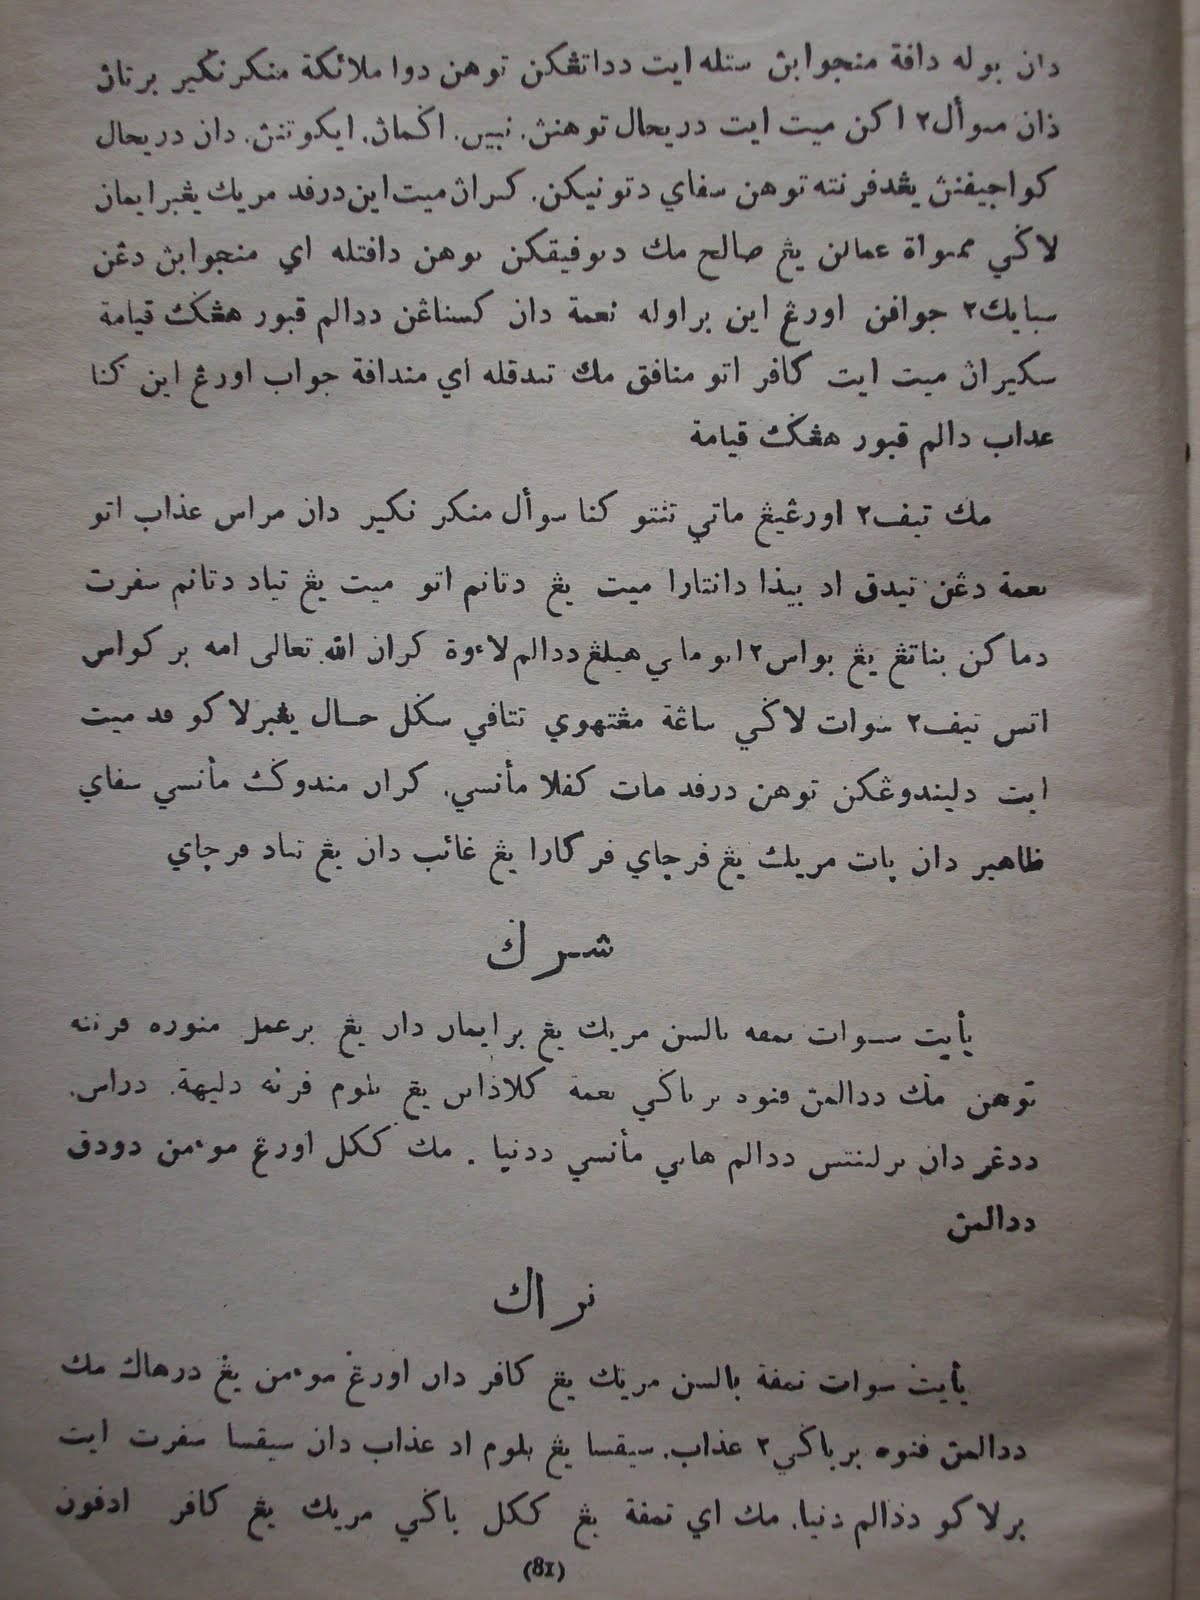 دان بوله دافة منجوابڽ ستله ايت دداتڠكن توهن دوا ملائكة منكر نكير برتاڽ
دان سوأل٢ اكن ميت ايت دريحال توهنڽ. نبيڽ. اݢماڽ. ايكوتنڽ. دان دريحال
كواجيفنڽ يڠدفرنته توهن سفاي دتونيكن. كراڽ ميت اين درفد مريك يڠبرايمان
لاݢي ممبواة عمالن يڠ صالح مك دتوفيقكن توهن دافتله اي منجوابڽ دڠن
سبايك٢ جوافن اورڠ اين براوله نعمة دان كسناڠن ددالم قبور هڠݢ قيامة
سكيراڽ ميت ايت كافر اتو منافق مك تيدقله اي مندافة جواب اورڠ اين كنا
عذاب دالم قبور هڠݢ قيامة
مك تيف٢ اورڠيڠ ماتي تنتو كنا سوأل منكر نكير دان مراس عذاب اتو
نعمة دڠن تيدق اد بيذا دانتارا ميت يڠ دتانم اتو ميت يڠ تياد دتانم سفرت
دماكن بناتڠ يڠ بواس٢ اتو ماتي هيلڠ ددالم لاءوة كران الله تعالى امه بركواس
اتس تيف٢ سوات لاݢي ساڠة مڠتهوي تتافي سݢل حال يڠبرلاكو فد ميت
ايت دليندوڠكن توهن درفد مات كفلا مأنسي. كران مندوݢ مأنسي سفاي
ظاهير دان ڽات مريك يڠ فرچاي فركارا يڠ غائب دان يڠ تياد فرچاي
شرݢ
يأيت سوات تمفه بالسن مريك يڠ برايمان دان يڠ برعمل منوره فرنته
توهن مك ددالمڽ فنوه برباݢي نعمة كلاذاتن يڠ بلوم فرنه دليهة. دراس.
ددڠر دان برلينتس ددالم هاتي مأنسي ددنيا. مك ككل اورڠ موءمن دودق
ددالمڽ
نراك
يأيت سوات تمفة بالسن مريك يڠ كافر دان اورڠ موءمن يڠ درهاك مك
ددالمڽ فنوه برباݢي٢ عذاب. سيقسا يڠ بلوم اد عذاب دان سيقسا سفرت ايت
برلاكو ددالم دنيا. مك اي تمفة يڠ ككل باݢي مريك يڠ كافر ادفون
(81)